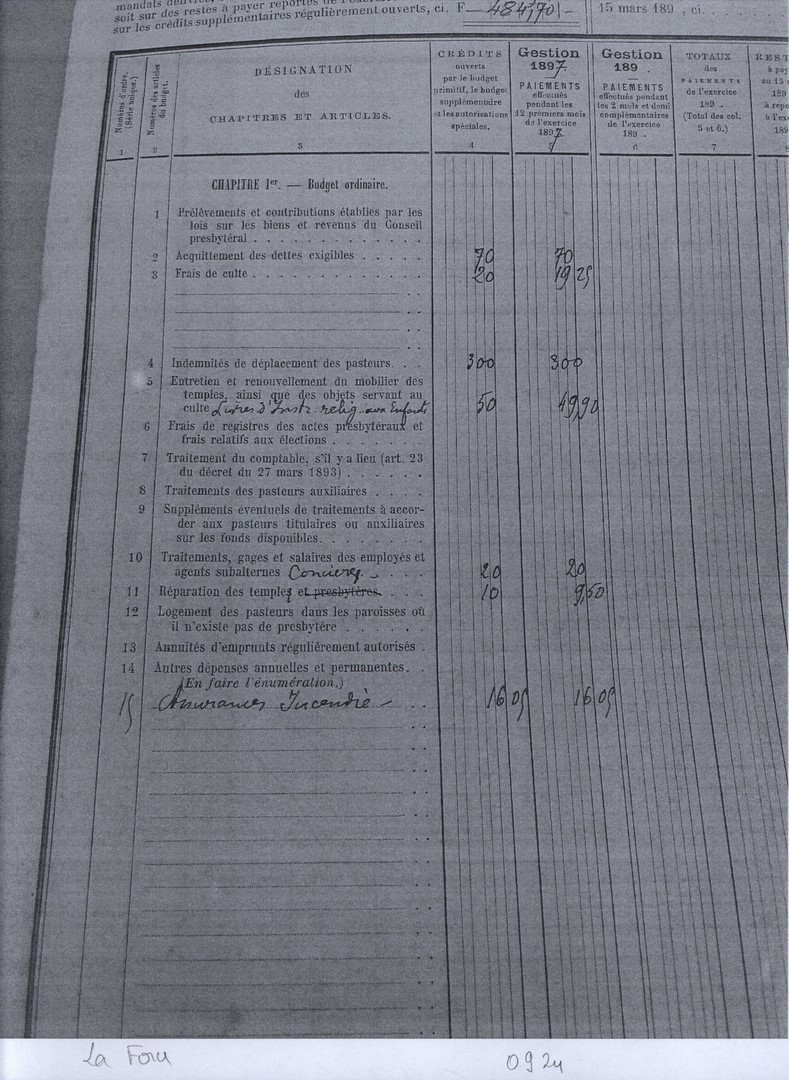 soit sur des restes à payer reportés de
sur les crédits supplémentaires régulièrement ouverts, ci. F 484,70
15 mars 189 , ci.
Numéros d'ordre.
(Série unique.)
Numéros des articles
du budget.
DÉSIGNATION
des
CHAPITRES ET ARTICLES.
CRÉDITS
ouverts
par le budget
primitif, le budget
supplémentaire
et les autorisations
spéciales.
Gestion
1897.
PAIEMENTS
effectués
pendant les
12 premiers mois
de l'exercice
1897
Gestion
189 .
PAIEMENTS
effectués pendant
les 2 mois et demi
complémentaires
de l'exercice
189 .
TOTAUX
des
PAIEMENTS
de l'exercice
189 .
(Total des col.
5 et 6.)
REST
à pay
au 15
189
à repo
à l'ex
189
1 2 3 4 5 6 7
CHAPITRE Ier. — Budget ordinaire.
1 Prélèvements et contributions établies par les
lois sur les biens et revenus du Conseil
presbytéral
2 Acquittement des dettes exigibles 70 70
3 Frais de culte 20 19 25
4 Indemnités de déplacement des pasteurs. 300 300
5 Entretien et renouvellement du mobilier des
temples, ainsi que des objets servant au
culte Livres d'Instr. relig. aux Enfants 50 49,90
6 Frais de registres des actes presbytéraux et
frais relatifs aux élections
7 Traitement du comptable, s'il y a lieu (art. 23
du décret du 27 mars 1893)
8 Traitements des pasteurs auxiliaires
9 Suppléments éventuels de traitements à accor-
der aux pasteurs titulaires ou auxiliaires
sur les fonds disponibles.
10 Traitements, gages et salaires des employés et
agents subalternes Concierg. 20 20
11 Réparation des temples et presbytères. 10 9,50
12 Logement des pasteurs dans les paroisses où
il n'existe pas de presbytère
13 Annuités d'emprunts régulièrement autorisés .
14 Autres dépenses annuelles et permanentes.
(En faire l'énumération.)
15 Assurances Incendie 16 05 16 05
La